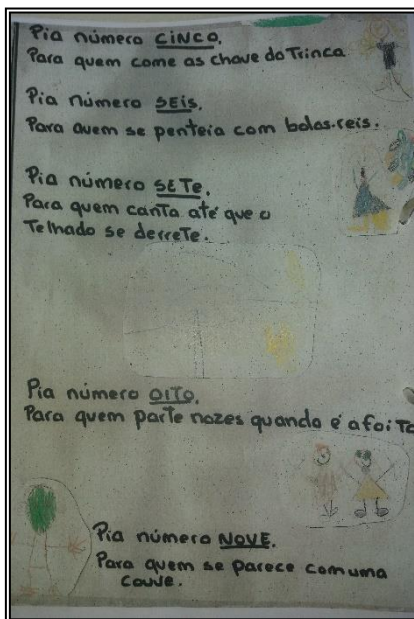 Pia número CINCO,
Para quem come as chave do Trinca
Pia número SEIS,
Para quem se penteia com bolos-reis.
Pia número SETE,
Para quem canta até que o
Telhado se derrete.
Pia número OITO,
Para quem parte nozes quando é afoito
Pia número NOVE,
Para quem se parece com uma
couve.